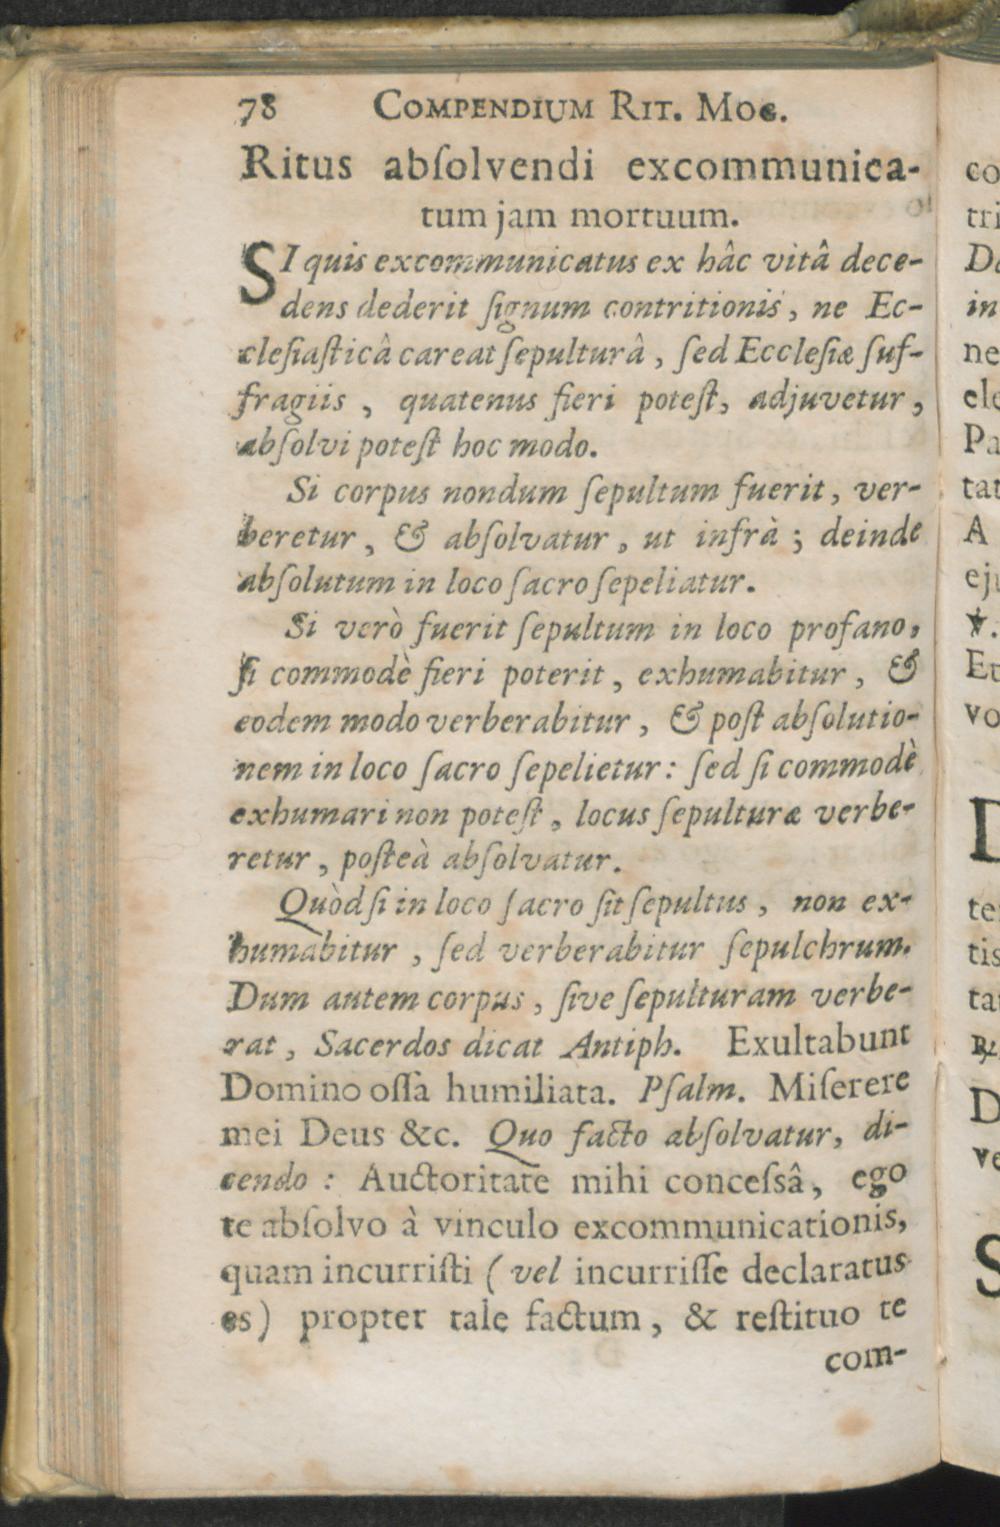 78 COMPENDIUM RIT. MOG.
Ritus abſolvendi excommunica-
tum jam mortuum.
SI quis excommunicatus ex hâc vitâ dece-
dens dederit ſignum contritionis, ne Ec-
cleſiaſticâ careat ſepulturâ, ſed Eccleſiæ ſuf-
fragiis, quatenus fieri poteſt, adjuvetur,
abſolvi poteſt hoc modo.
Si corpus nondum ſepultum fuerit, ver-
beretur, & abſolvatur, ut infrà; deinde
abſolutum in loco ſacro ſepeliatur.
Si verò fuerit ſepultum in loco profano,
ſi commodè fieri poterit, exhumabitur, &
eodem modo verberabitur, & poſt abſolutio-
nem in loco ſacro ſepelietur: ſed ſi commodè
exhumari non poteſt, locus ſepulturæ verbe-
retur, poſteà abſolvatur.
Quòd ſi in loco ſacro ſit ſepultus, non ex-
humabitur, ſed verberabitur ſepulchrum.
Dum autem corpus, ſive ſepulturam verbe-
rat, Sacerdos dicat Antiph. Exultabunt
Domino oſſa humiliata. Pſalm. Miſerere
mei Deus &c. Quo facto abſolvatur, di-
cendo: Auctoritate mihi conceſsâ, ego
te abſolvo à vinculo excommunicationis,
quam incurriſti (vel incurriſſe declaratus
es) propter tale factum, & reſtituo te
com-
co
tri
in
ne
ele
Pa
tat
A
ej
℣.
Et
vo
D
te
tis
ta
℟.
D
ve
S